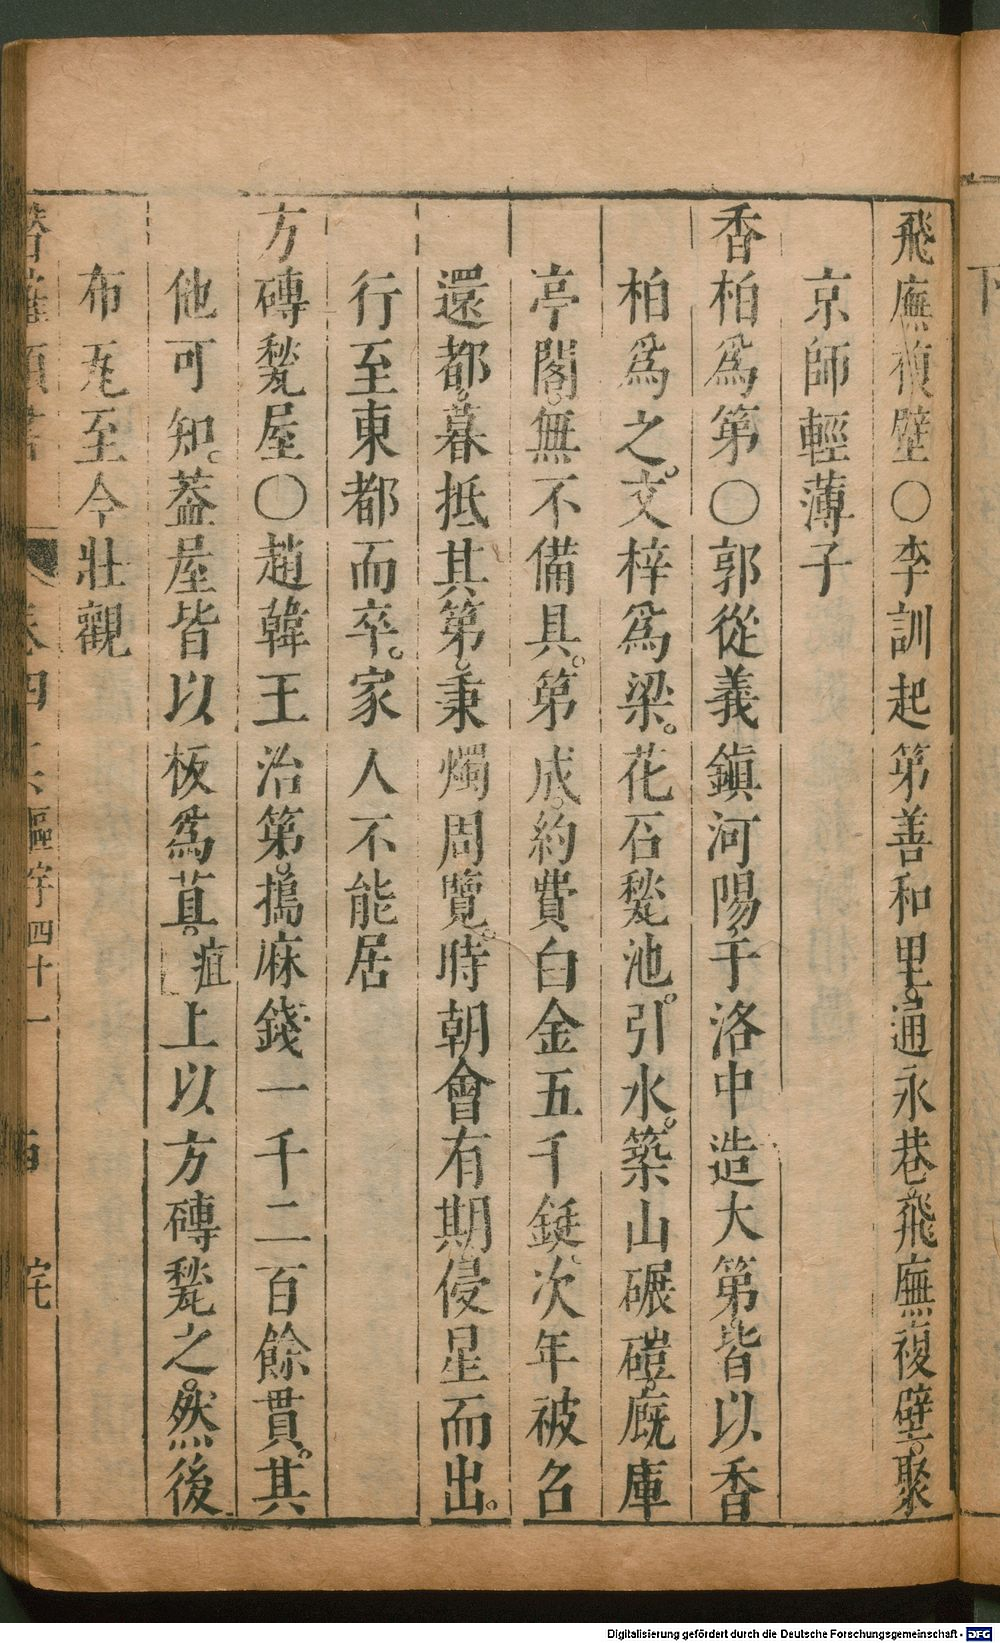 飛廡複壁○李訓起第善和里。通永巷飛廡複壁。聚
京師輕薄子
香柏為第○郭從義鎮河陽。于洛中造大第。皆以香
柏為之。文梓為梁。花石甃池。引水。築山碾磑。廐庫
亭閣。無不備具。第成。約費白金五千鋌。次年被召
還都。暮抵其第。秉燭周覽。時朝會有期侵星而出。
行至東都而卒。家人不能居
方磚甃屋○趙韓王治第。搗麻錢一千二百餘貫。其
他可知。葢屋皆以板為苴。疽上以方磚甃之。然後
布瓦至今壯觀
卷四
四十一
Digitalisierung gefördert durch die Deutsche Forschungsgemeinschaft - DFG